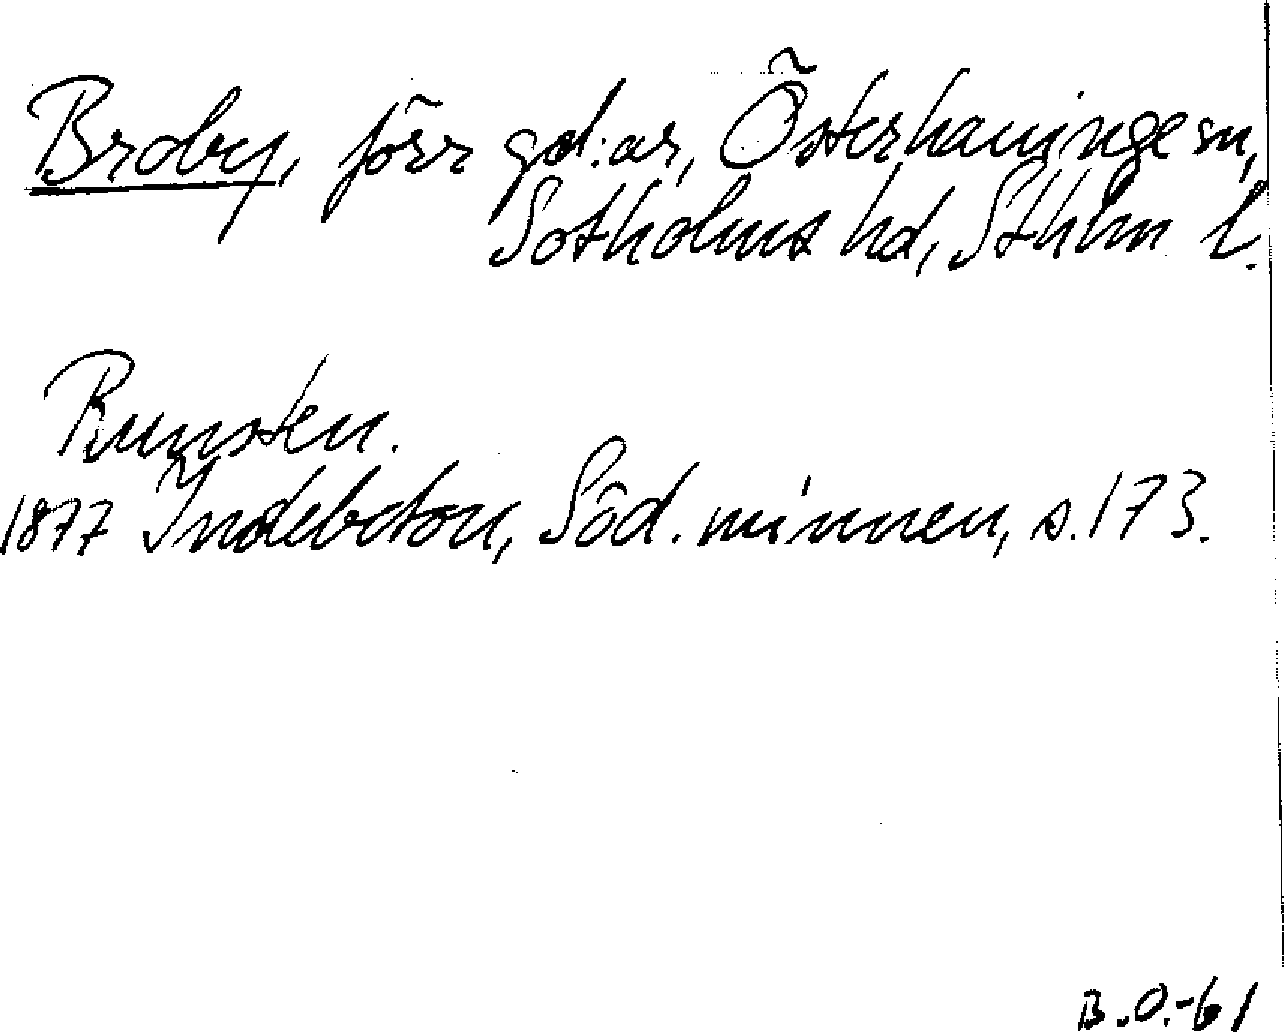 Broby, förr gd:ar, Österhaninge sn,
Sotholms hd, Sthlm l.
Runsten.
1877 Indebetou, Söd. minnen, s. 173.
B.O.-61